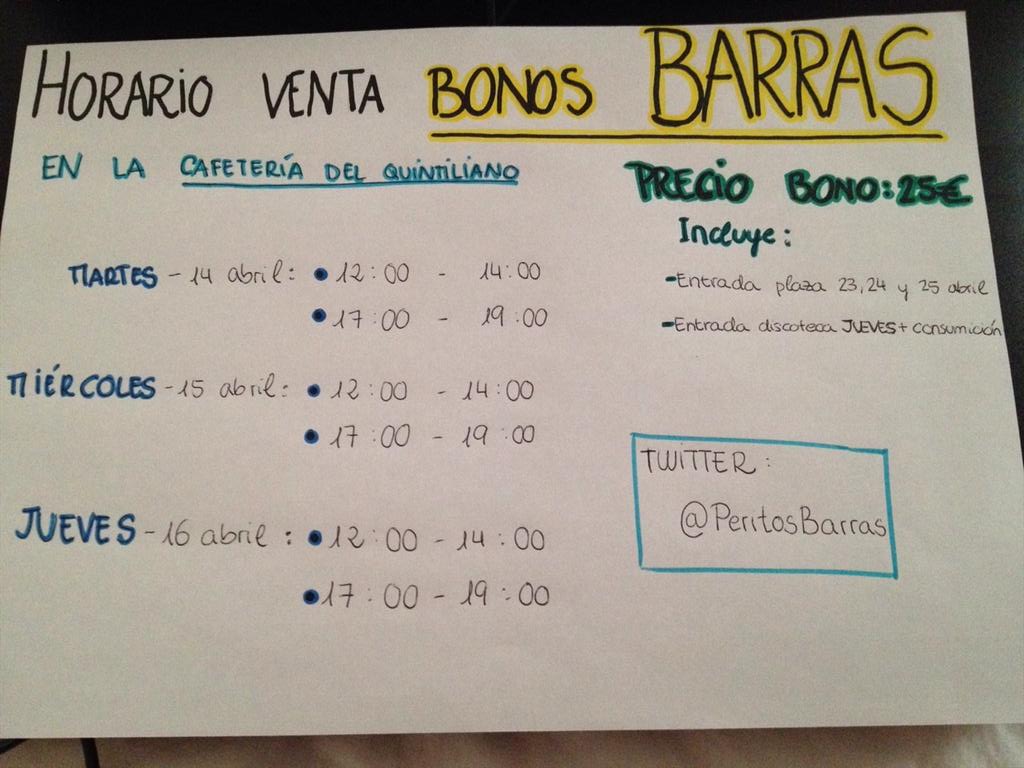 HORARIO VENTA BONOS BARRAS
EN LA CAFETERÍA DEL QUINTILIANO
MARTES - 14 abril: • 12:00 - 14:00
• 17:00 - 19:00
MIÉRCOLES - 15 abril: • 12:00 - 14:00
• 17:00 - 19:00
JUEVES - 16 abril: • 12:00 - 14:00
• 17:00 - 19:00
PRECIO BONO: 25€
Incluye:
- Entrada plaza 23, 24 y 25 abril
- Entrada discoteca JUEVES + consumición
TWITTER:
@PeritosBarras